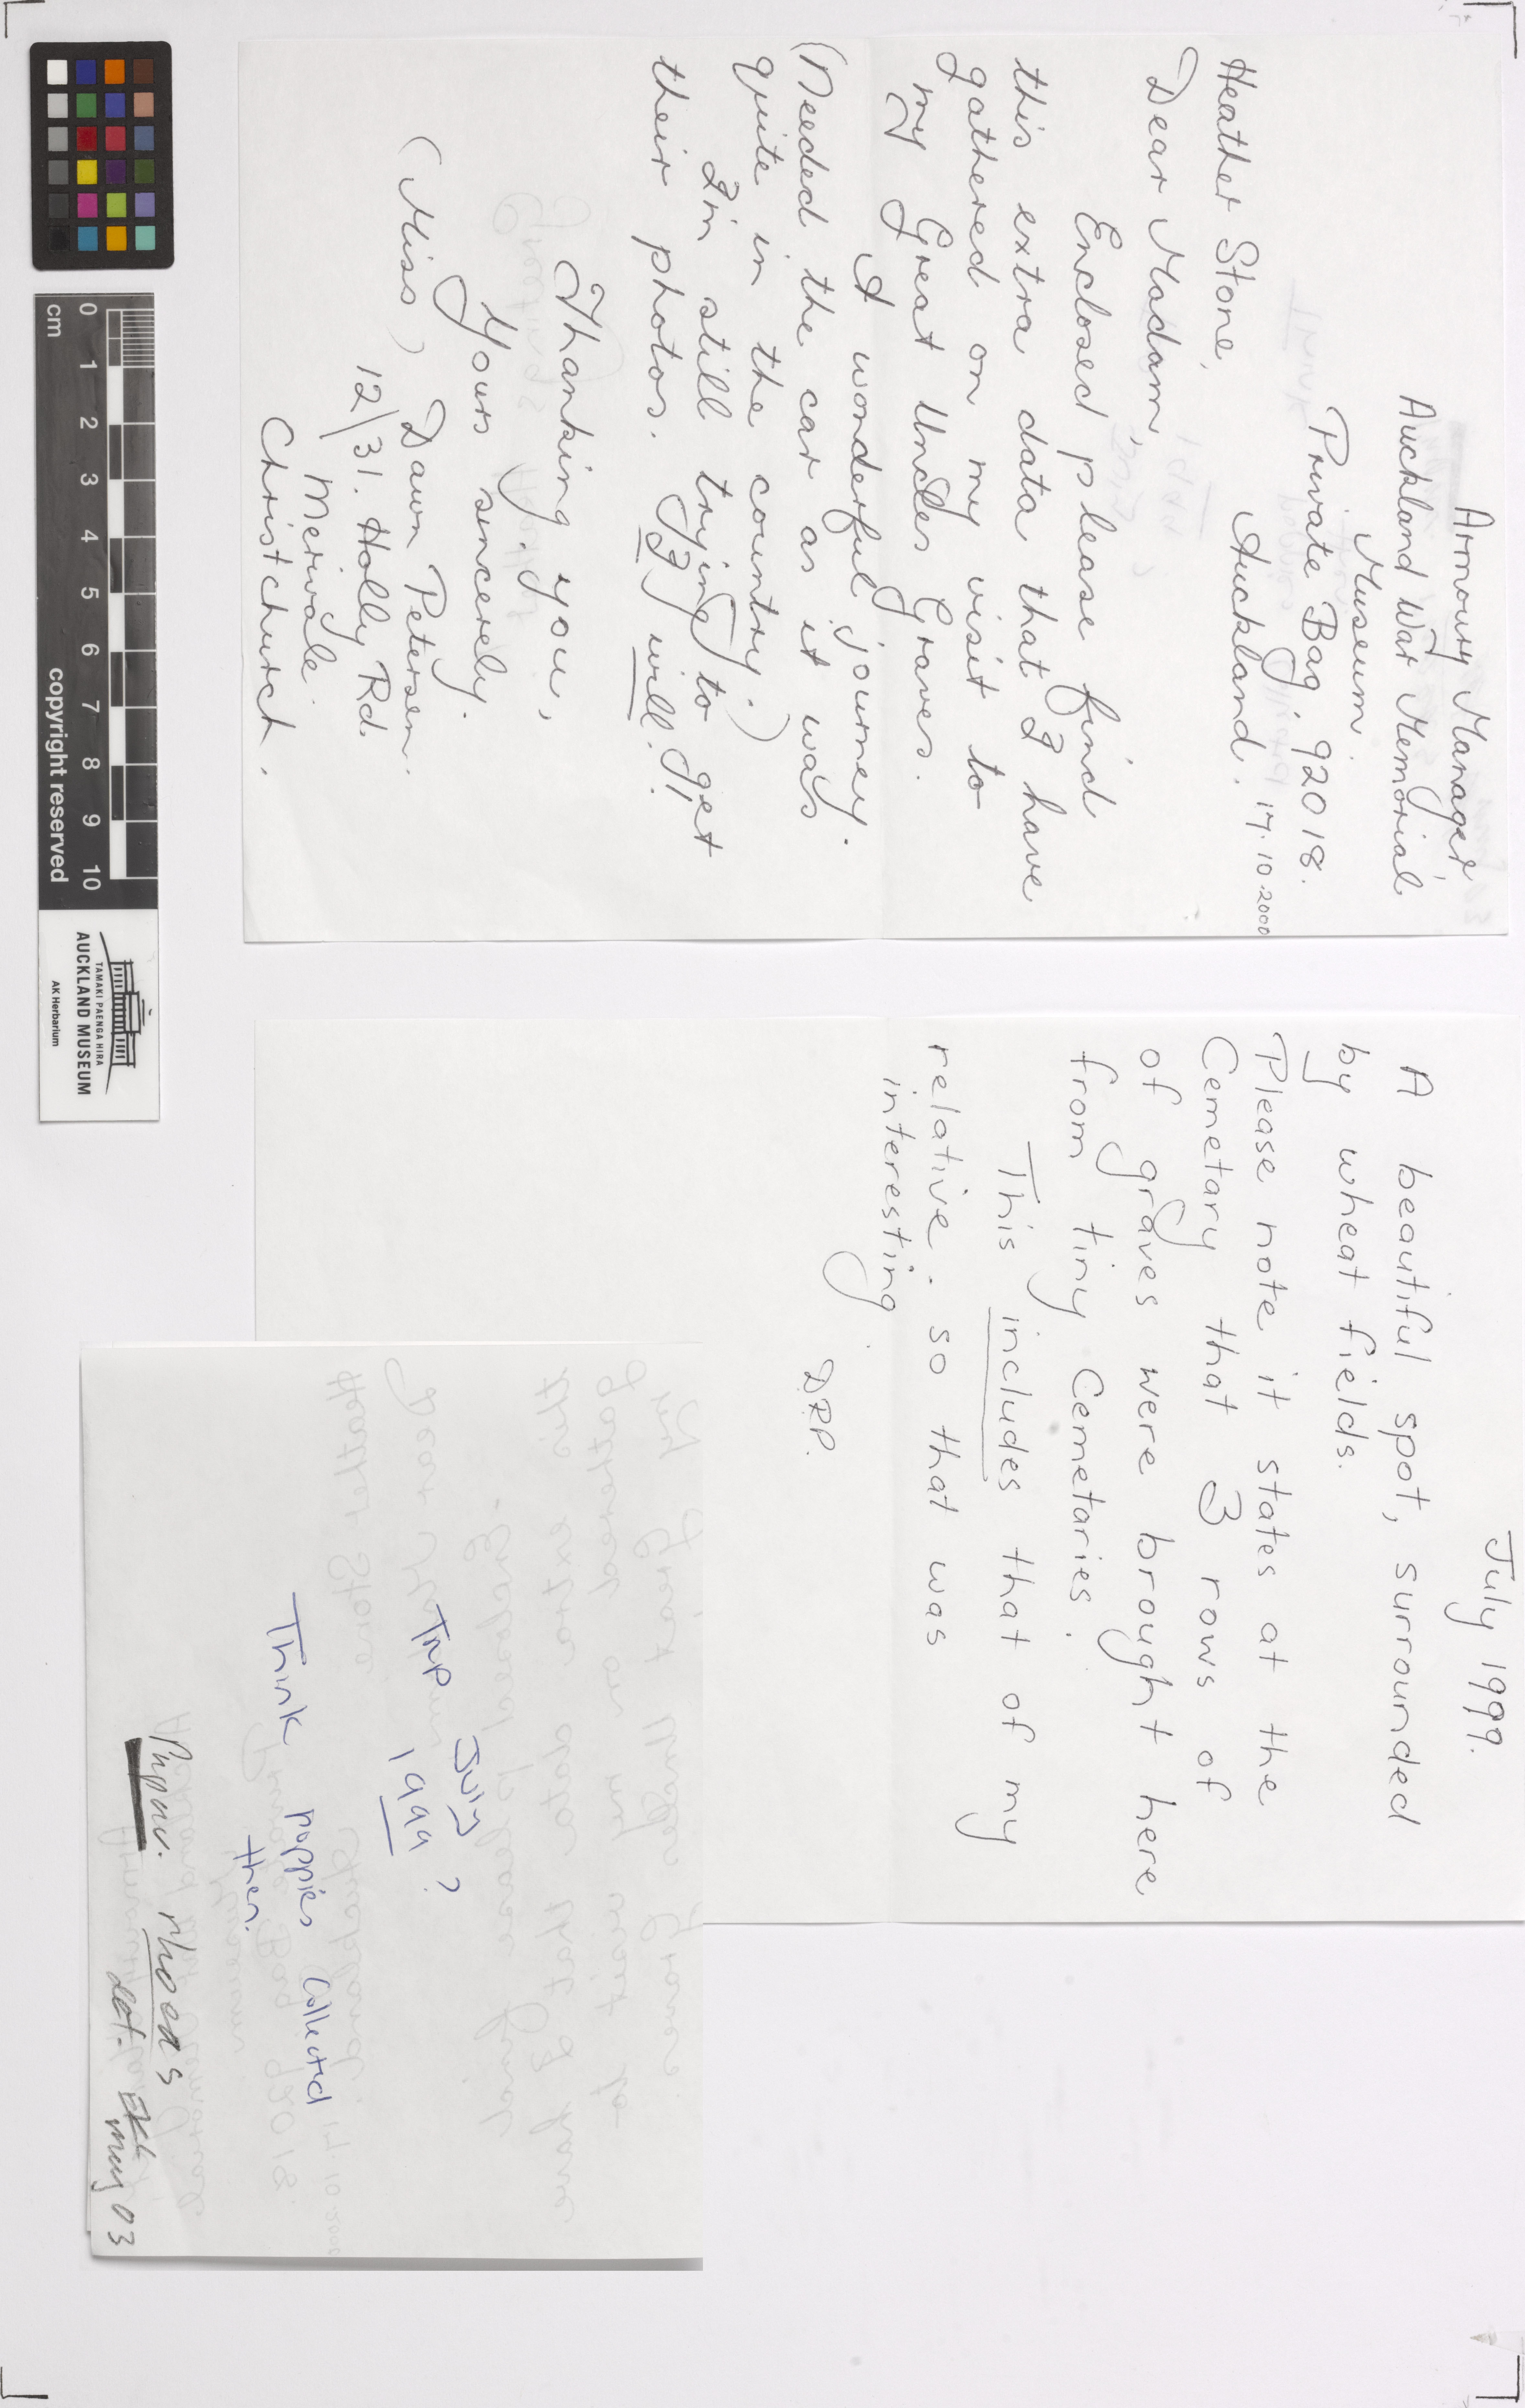 Armoury Manager,
Auckland War Memorial
Museum.
Private Bag 92018.
Auckland. 17.10.2000
Heather Stone,
Dear Madam,
Enclosed please find
this extra data that I have
gathered on my visit to
my Great Uncles Graves.
A wonderful journey.
(Needed the car as it was
quite in the country.)
I'm still trying to get
their photos. I will!
Thanking you,
Yours sincerely.
(Miss) Dawn Petersen.
12/31. Holly Rd.
Merivale.
Christchurch.
July 1999.
A beautiful spot, surrounded
by wheat fields.
Please note it states at the
Cemetary that 3 rows of
of graves were brought here
from tiny Cemetaries.
This includes that of my
relative. so that was
interesting.
D.R.P.
July ?
Trip 1999
Think poppies collected
then.
Papav. rhoeas
det.
may 03
0 1 2 3 4 5 6 7 8 9 10
cm
copyright reserved
TAMAKI PAENGA HIRA
AUCKLAND MUSEUM
AK Herbarium